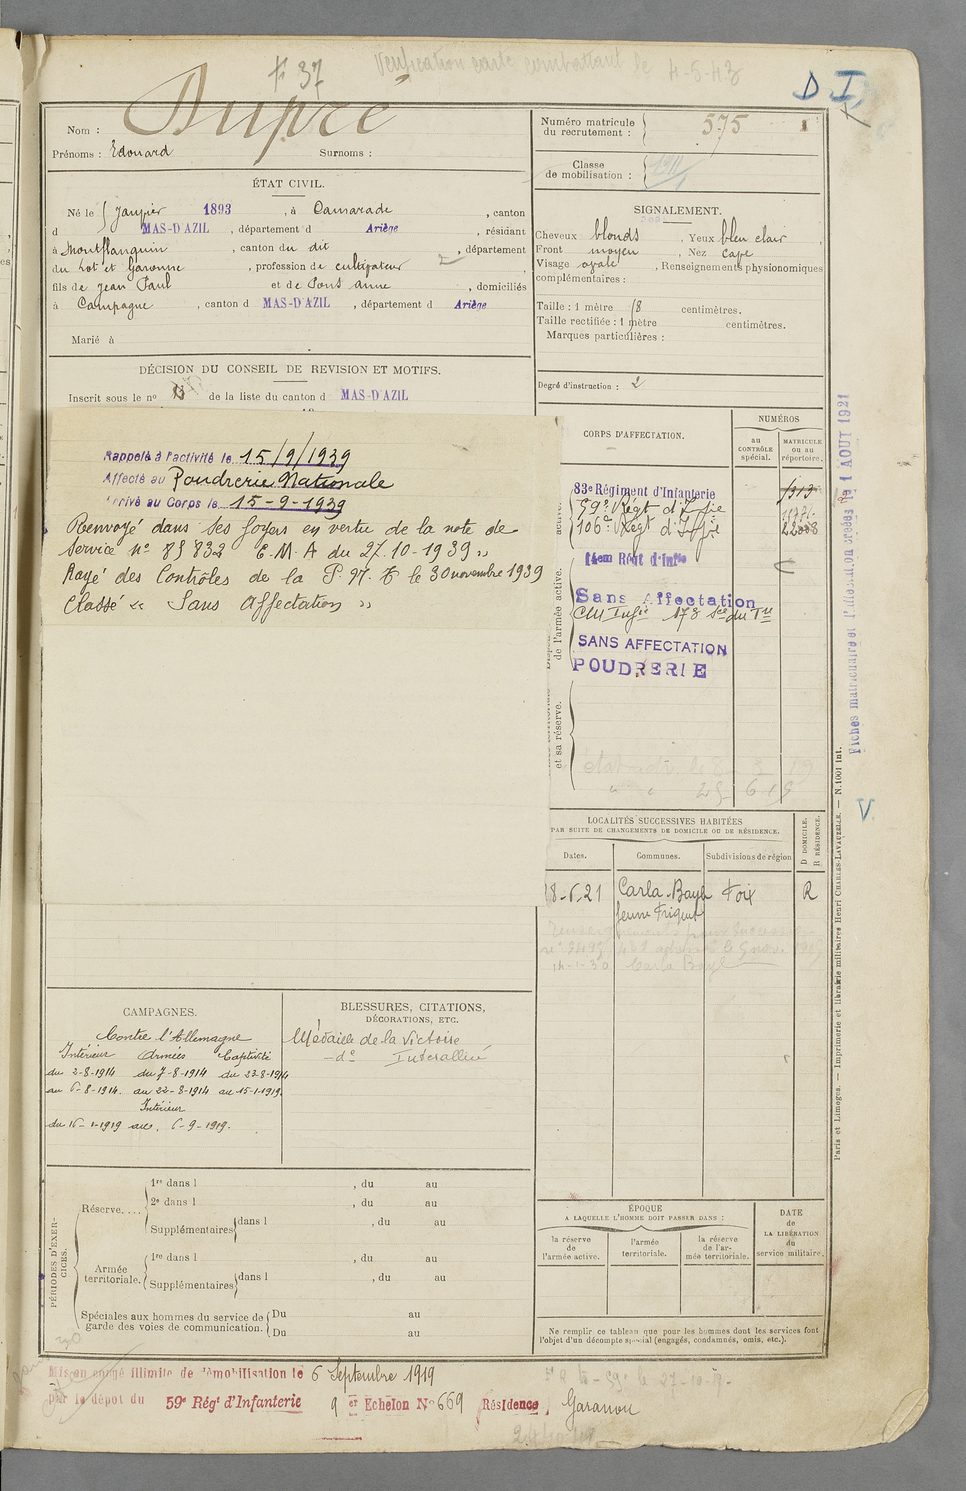 F. 37
Verification carte combattant le 4-5-43
D I
Nom : Dupré
Prénoms : Edouard Surnoms :
Numéro matricule du recrutement : 575
Classe de mobilisation : 1911
ÉTAT CIVIL.
Né le 5 Janvier 1893, à Camarade, canton
d MAS-D'AZIL, département d Ariège, résidant
à Montflanquin, canton du dit, département
du Lot et Garonne, profession de cultivateur
fils de Jean Paul et de Pons Anne, domiciliés
à Campagne, canton d MAS-D'AZIL, département d Ariège
Marié à
SIGNALEMENT.
Cheveux blonds, Yeux bleu clair,
Front moyen, Nez cave
Visage ovale, Renseignements physionomiques
complémentaires :
Taille : 1 mètre 68 centimètres.
Taille rectifiée : 1 mètre centimètres.
Marques particulières :
Degré d'instruction : 2
DÉCISION DU CONSEIL DE REVISION ET MOTIFS.
Inscrit sous le no 13 de la liste du canton d MAS-D'AZIL
Rappelé à l'activité le 15/9/1939
Affecté au Poudrerie Nationale
Arrivé au Corps le 15-9-1939
Renvoyé dans ses foyers en vertu de la note de
Service no 85832 E.M.A du 27.10-1939 "
Rayé des Contrôles de la P. N. T le 30 novembre 1939
Classé « Sans Affectation »
CORPS D'AFFECTATION.
NUMÉROS
au CONTRÔLE spécial.
MATRICULE ou au répertoire.
83e Régiment d'Infanterie 1313
59e Régt d'Infie
106e Régt d'Infie 22008
14eme Régt d'Infie
Sans Affectation
CM Infie 178 Son du Tn
SANS AFFECTATION
POUDRERIE
de l'armée active.
et sa réserve.
Fiches matriculaire et d'affectation créées le 1 AOUT 1921
V.
LOCALITÉS SUCCESSIVES HABITÉES
PAR SUITE DE CHANGEMENTS DE DOMICILE OU DE RÉSIDENCE.
D DOMICILE.
R RÉSIDENCE.
Dates. Communes. Subdivisions de région
18-6-21 Carla-Bayle Foix R
14-1-30 Carla Bayle
CAMPAGNES.
Contre l'Allemagne
Intérieur Armées Captivité
du 2-8-1914 du 7-8-1914 du 23-8-1914
au 6-8-1914. au 22-8-1914 au 15-1-1919.
Intérieur
du 16-1-1919 au 6-9-1919.
BLESSURES, CITATIONS,
DÉCORATIONS, ETC.
Médaille de la Victoire
-do Interalliée
PÉRIODES D'EXERCICES.
Réserve....
1re dans l , du au
2e dans l , du au
Supplémentaires dans l , du au
Armée territoriale.
1re dans l , du au
Supplémentaires dans l , du au
Spéciales aux hommes du service de garde des voies de communication.
Du au
Du au
ÉPOQUE
A LAQUELLE L'HOMME DOIT PASSER DANS :
la réserve de l'armée active.
l'armée territoriale.
la réserve de l'armée territoriale.
DATE de LA LIBÉRATION du service militaire.
Ne remplir ce tableau que pour les hommes dont les services font
l'objet d'un décompte spécial (engagés, condamnés, omis, etc.).
Paris et Limoges. — Imprimerie et librairie militaires Henri CHARLES-LAVAUZELLE. — N. 1001 Int.
Mis en congé illimité de démobilisation le 6 Septembre 1919
par le dépôt du 59e Régt d'Infanterie 9 er Echelon No 669 Résidence Garanou